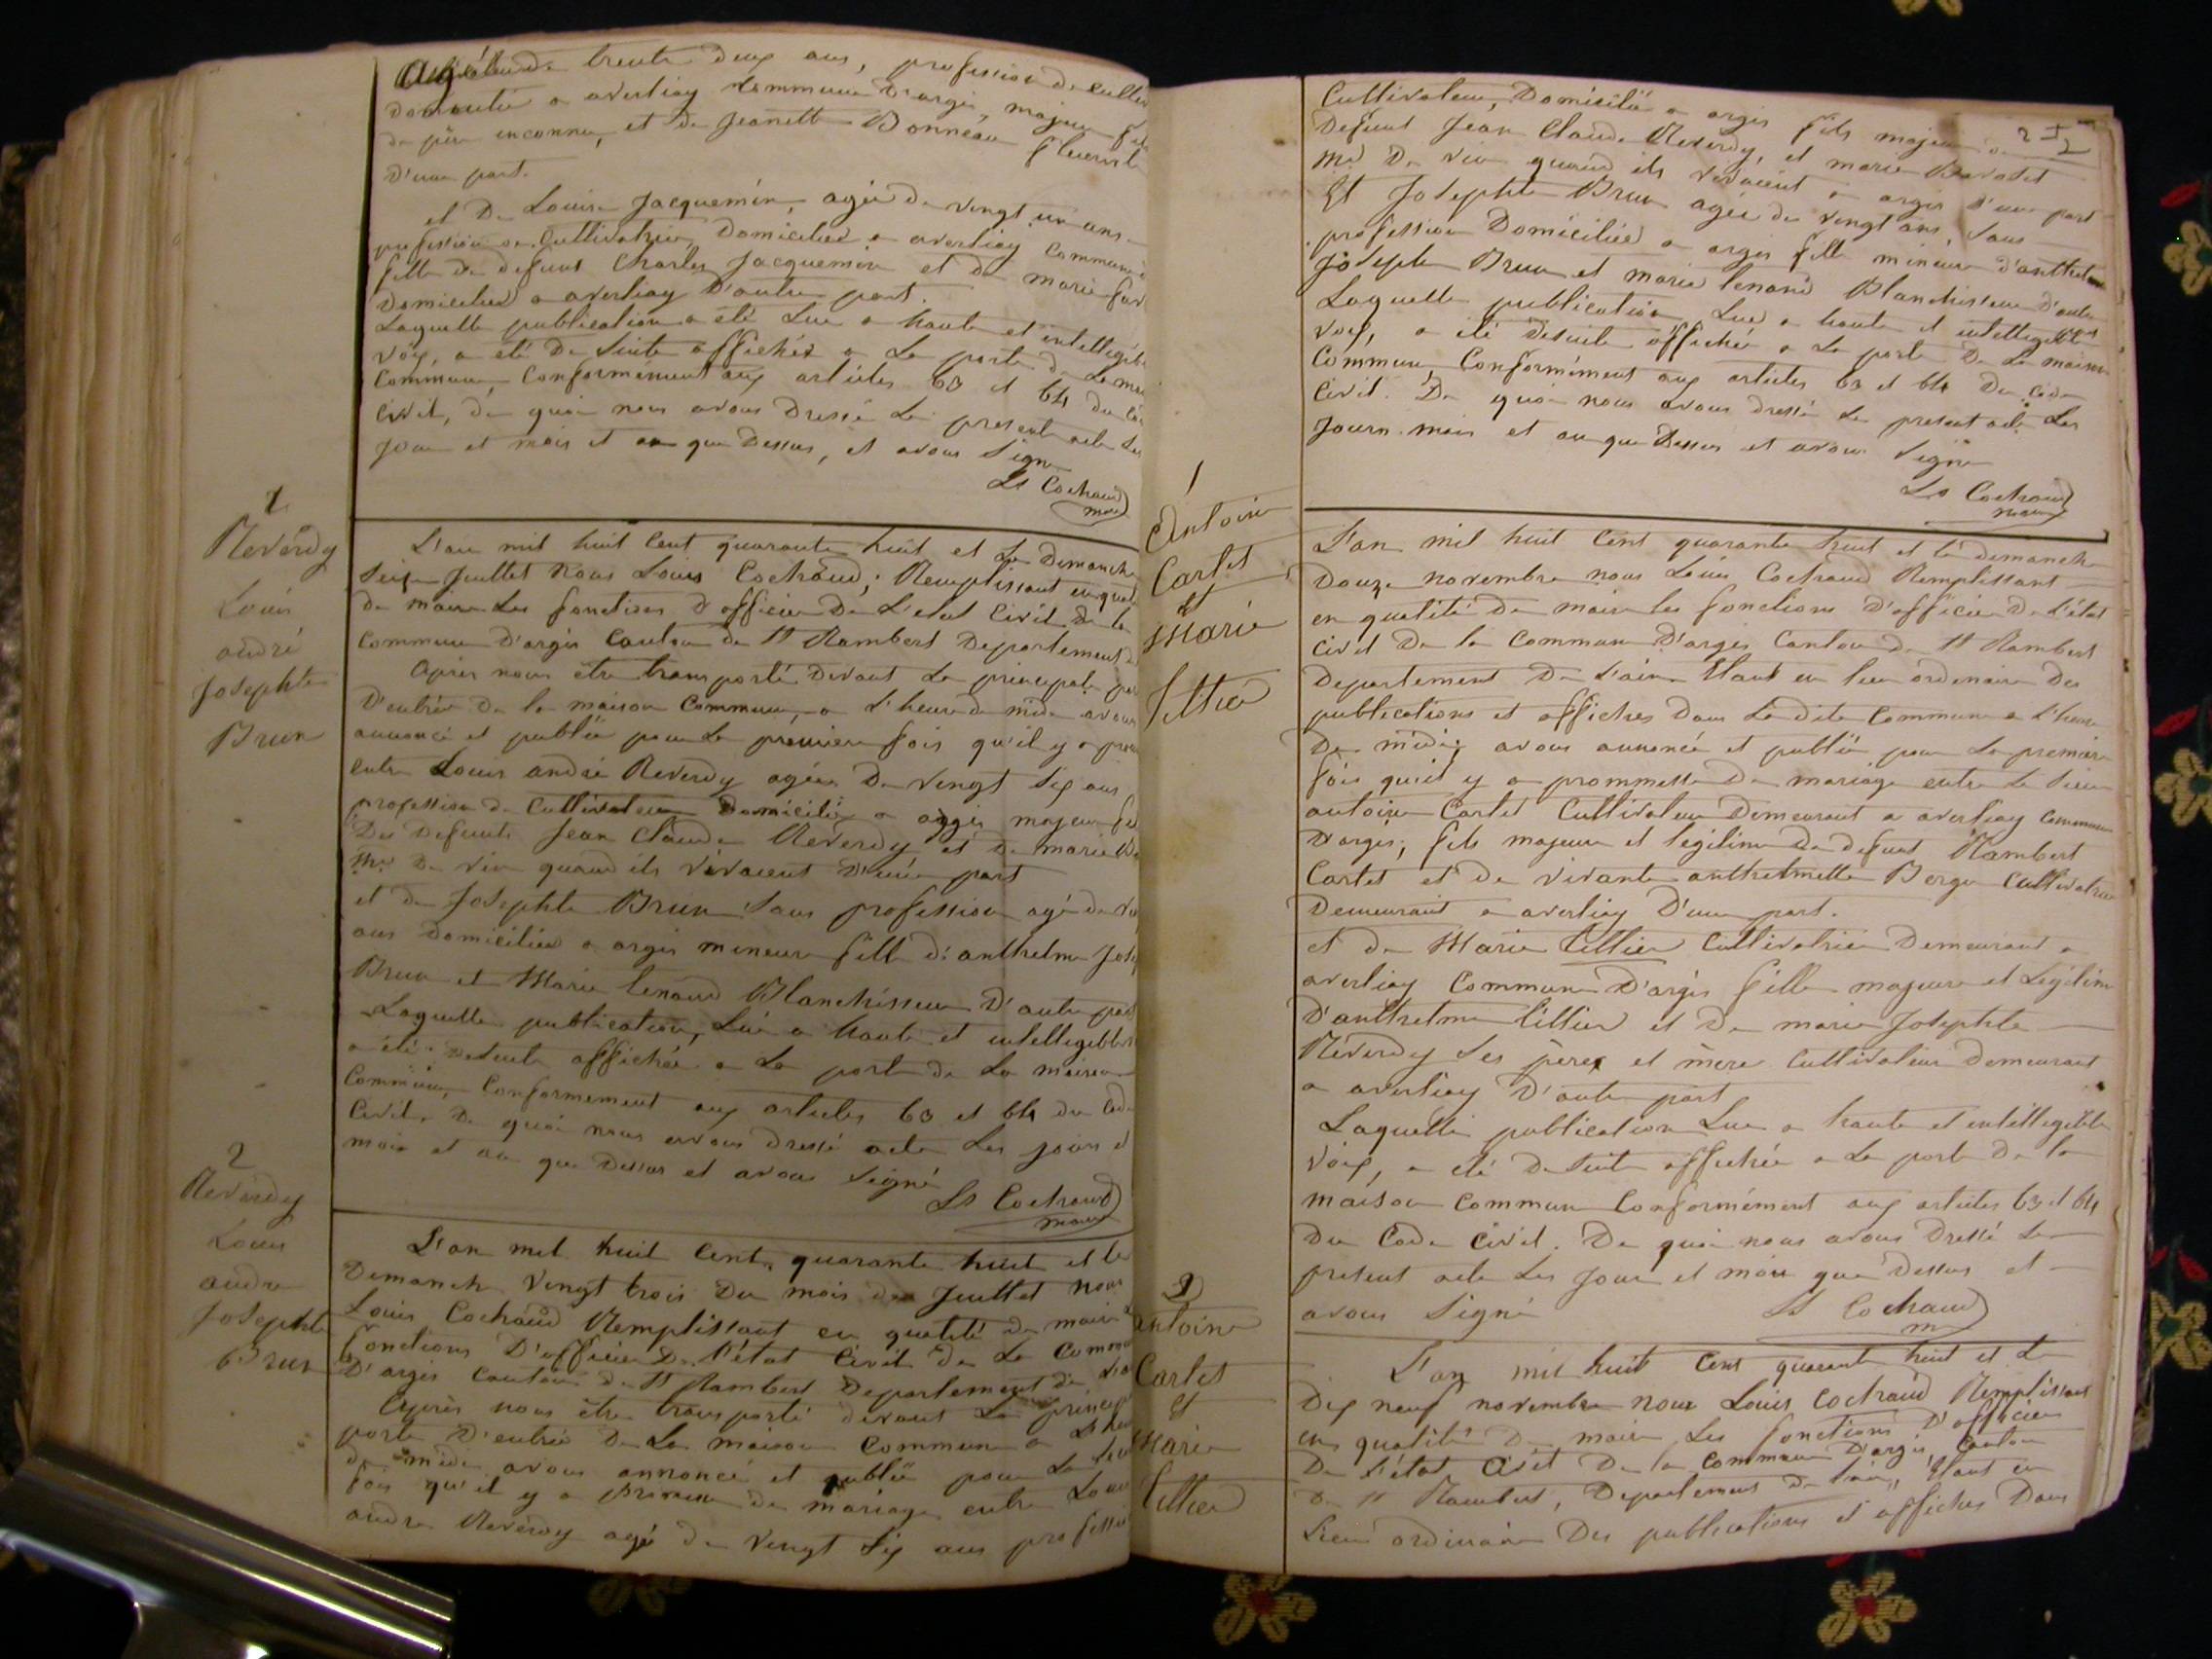 trente deux ans, profession de
domicilié a averliaz commune d'argis, majeur
de père inconnu, et de Jeanette Bonneau
D'une part.
et De Louise Jacquemin, agée de vingt un ans
profession de Cultivatrice Domiciliée a averliaz Commune
fille de defunt Charles Jacquemin et de marie
Domiciliée a averliaz D'autre part.
Laquelle publication a été Lue a haute et
voix, a été De Suite affichée a La porte de
Commune, Conformément aux articles 63 et 64 du
Civil, de quoi nous avons Dressé Le present acte Les
Jour et mois et an que Dessus, et avons Signé
Ls Cochaud
maire
1
Reverdy
Louis
andré
Josephte
Brun
L'an mil huit Cent quarante huit et Le Dimanche
Seize Juillet Nous Louis Cochaud, Remplissant en
de maire Les fonctions d'officier De L'etat Civil De la
Commune D'argis Canton de St Rambert Departement
Après nous être transporté Devant La principale
D'entrée De la maison Commune, a L'heure de midi avons
annoncé et publié pour La première fois qu'il y a
entre Louis andré Reverdy agée De vingt Six ans
profession de Cultivateur Domicilié a argis majeur
Des Defunts Jean Claude Reverdy et De marie
md De vin quand ils vivaient D'une part
et de Josephte Brun Sans profession agé de
ans domiciliée a argis mineure fille d'anthelme
Brun et Marie tenand Blanchisseur D'autre part
Laquelle publication, Lue a haute et intellegible
a été Desuite affichée a La porte de La maison
Commune, Conformement aux articles 63 et 64 du Code
Civil. De quoi nous avons dressé acte Les jour et
mois et an que Dessus et avons Signé
Ls Cochaud
maire
2
Reverdy
Louis
andre
Josephte
Brun
L'an mil huit Cent quarante huit et le
Dimanche vingt trois Du mois de Juillet nous
Louis Cochaud Remplissant en qualité de maire
fonctions D'officier De l'état Civil De La
D'argis Canton de St Rambert Departement de
Après nous être transporté devant La
porte D'entrée De La maison Commune a
de midi avons annoncé et publié pour La
fois qu'il y a de mariage entre Louis
andre Reverdy agé De vingt Six ans
Cultivateur, Domicilié a argis fils majeur de
Defunt Jean Claude Reverdy, et marie
md De vin quand ils vivaient a argis D'une part
Et Josephte Brun agée de vingt ans, Sans
profession Domiciliée a argis fille mineure d'anthelme
Joseph Brun et marie tenand Blanchisseur D'autre
Laquelle publication Lue a haute et intellegible
voix, a été Desuite affichée a La porte De La maison
Commune, Conformément aux articles 63 et 64 Du Code
Civil. De quoi nous avons dressé Le present acte Les
Jours mois et an que Dessus et avons Signé
Ls Cochaud
maire
1
Antoine
Cartet
et
Marie
tillier
L'an mil huit Cent quarante huit et le dimanche
Douze novembre nous Louis Cochaud Remplissant
en qualité de maire les fonctions D'officier De L'état
Civil De la Commune D'argis Canton de St Rambert
Departement De L'ain Etant en lieu ordinaire Des
publications et affiches Dans La dite Commune a L'heure
De midi avons annoncé et publié pour La première
fois qu'il y a prommesse De mariage entre Le Sieur
antoine Cartet Cultivateur Demeurant a averliaz Commune
D'argis, fils majeur et legitime De defunt Rambert
Cartet et De vivante anthelmette Berger Cultivatrice
Demeurant a averliaz D'une part.
et de Marie tillier Cultivatrice Demeurant a
averliaz Commune D'argis fille majeure et Legitime
D'anthelme tillier et De marie Josephte
Reverdy Ses père et mère Cultivateur demeurant
a averliaz D'autre part
Laquelle publication Lue a haute et intellegible
voix, a été De Suite affichée a La porte De la
maison Commune Conformément aux articles 63 et 64
Du Code Civil. De quoi nous avons Dressé Le
present acte Les Jour et mois que Dessus et
avons Signé Ls Cochaud
2
antoine
Cartet
et
Marie
tillier
L'an mil huit Cent quarante huit et Le
Dix neuf novembre nous Louis Cochaud Remplissant
en qualité De maire Les fonctions D'officier
De L'état Civil De la Commune D'argis, Canton
De St Rambert, Departement De L'ain, Etant en
Lieu ordinaire Des publications et affiches Dans